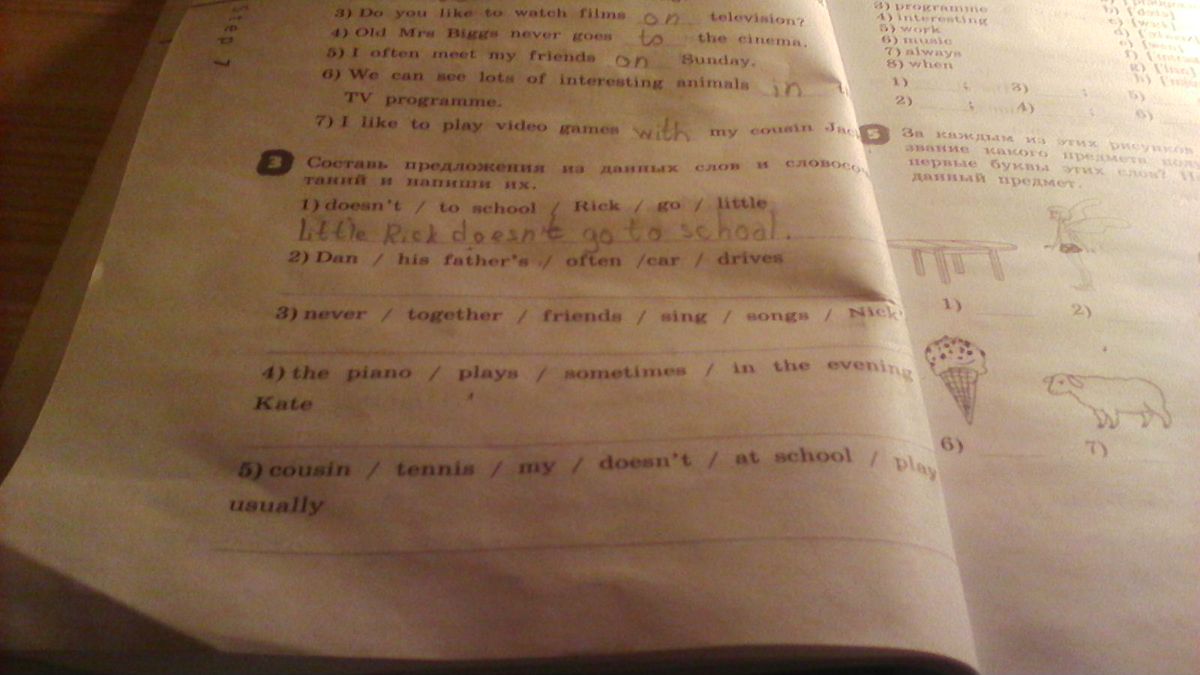 Step 7
3) Do you like to watch films on television?
4) Old Mrs Biggs never goes to the cinema.
5) I often meet my friends on Sunday.
6) We can see lots of interesting animals in
TV programme.
7) I like to play video games with my cousin
3 Составь предложения из данных слов и
таний и напиши их.
1) doesn't / to school / Rick / go / little
Little Rick doesn't go to school.
2) Dan / his father's / often /car / drives
3) never / together / friends / sing / songs / Nick'
4) the piano / plays / sometimes / in the evening
Kate
5) cousin / tennis / my / doesn't / at school / play
usually
3) programme
4) interesting
5) work
6) music
7) always
8) when
1) ; 3) ; 5)
2) ; 4) ; 6)
5 За каждым из этих рисунков
звание какого предмета
первые буквы этих слов?
данный предмет.
1) 2)
6) 7)